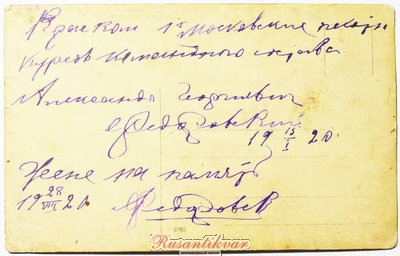 Краском 1й Московских пехотн
Курсов командного состава
Александр Георгиевич
Федоровский
19 15/I 20
Жене на память
19 28/VIII 20 Федоровск
Rusantikvar